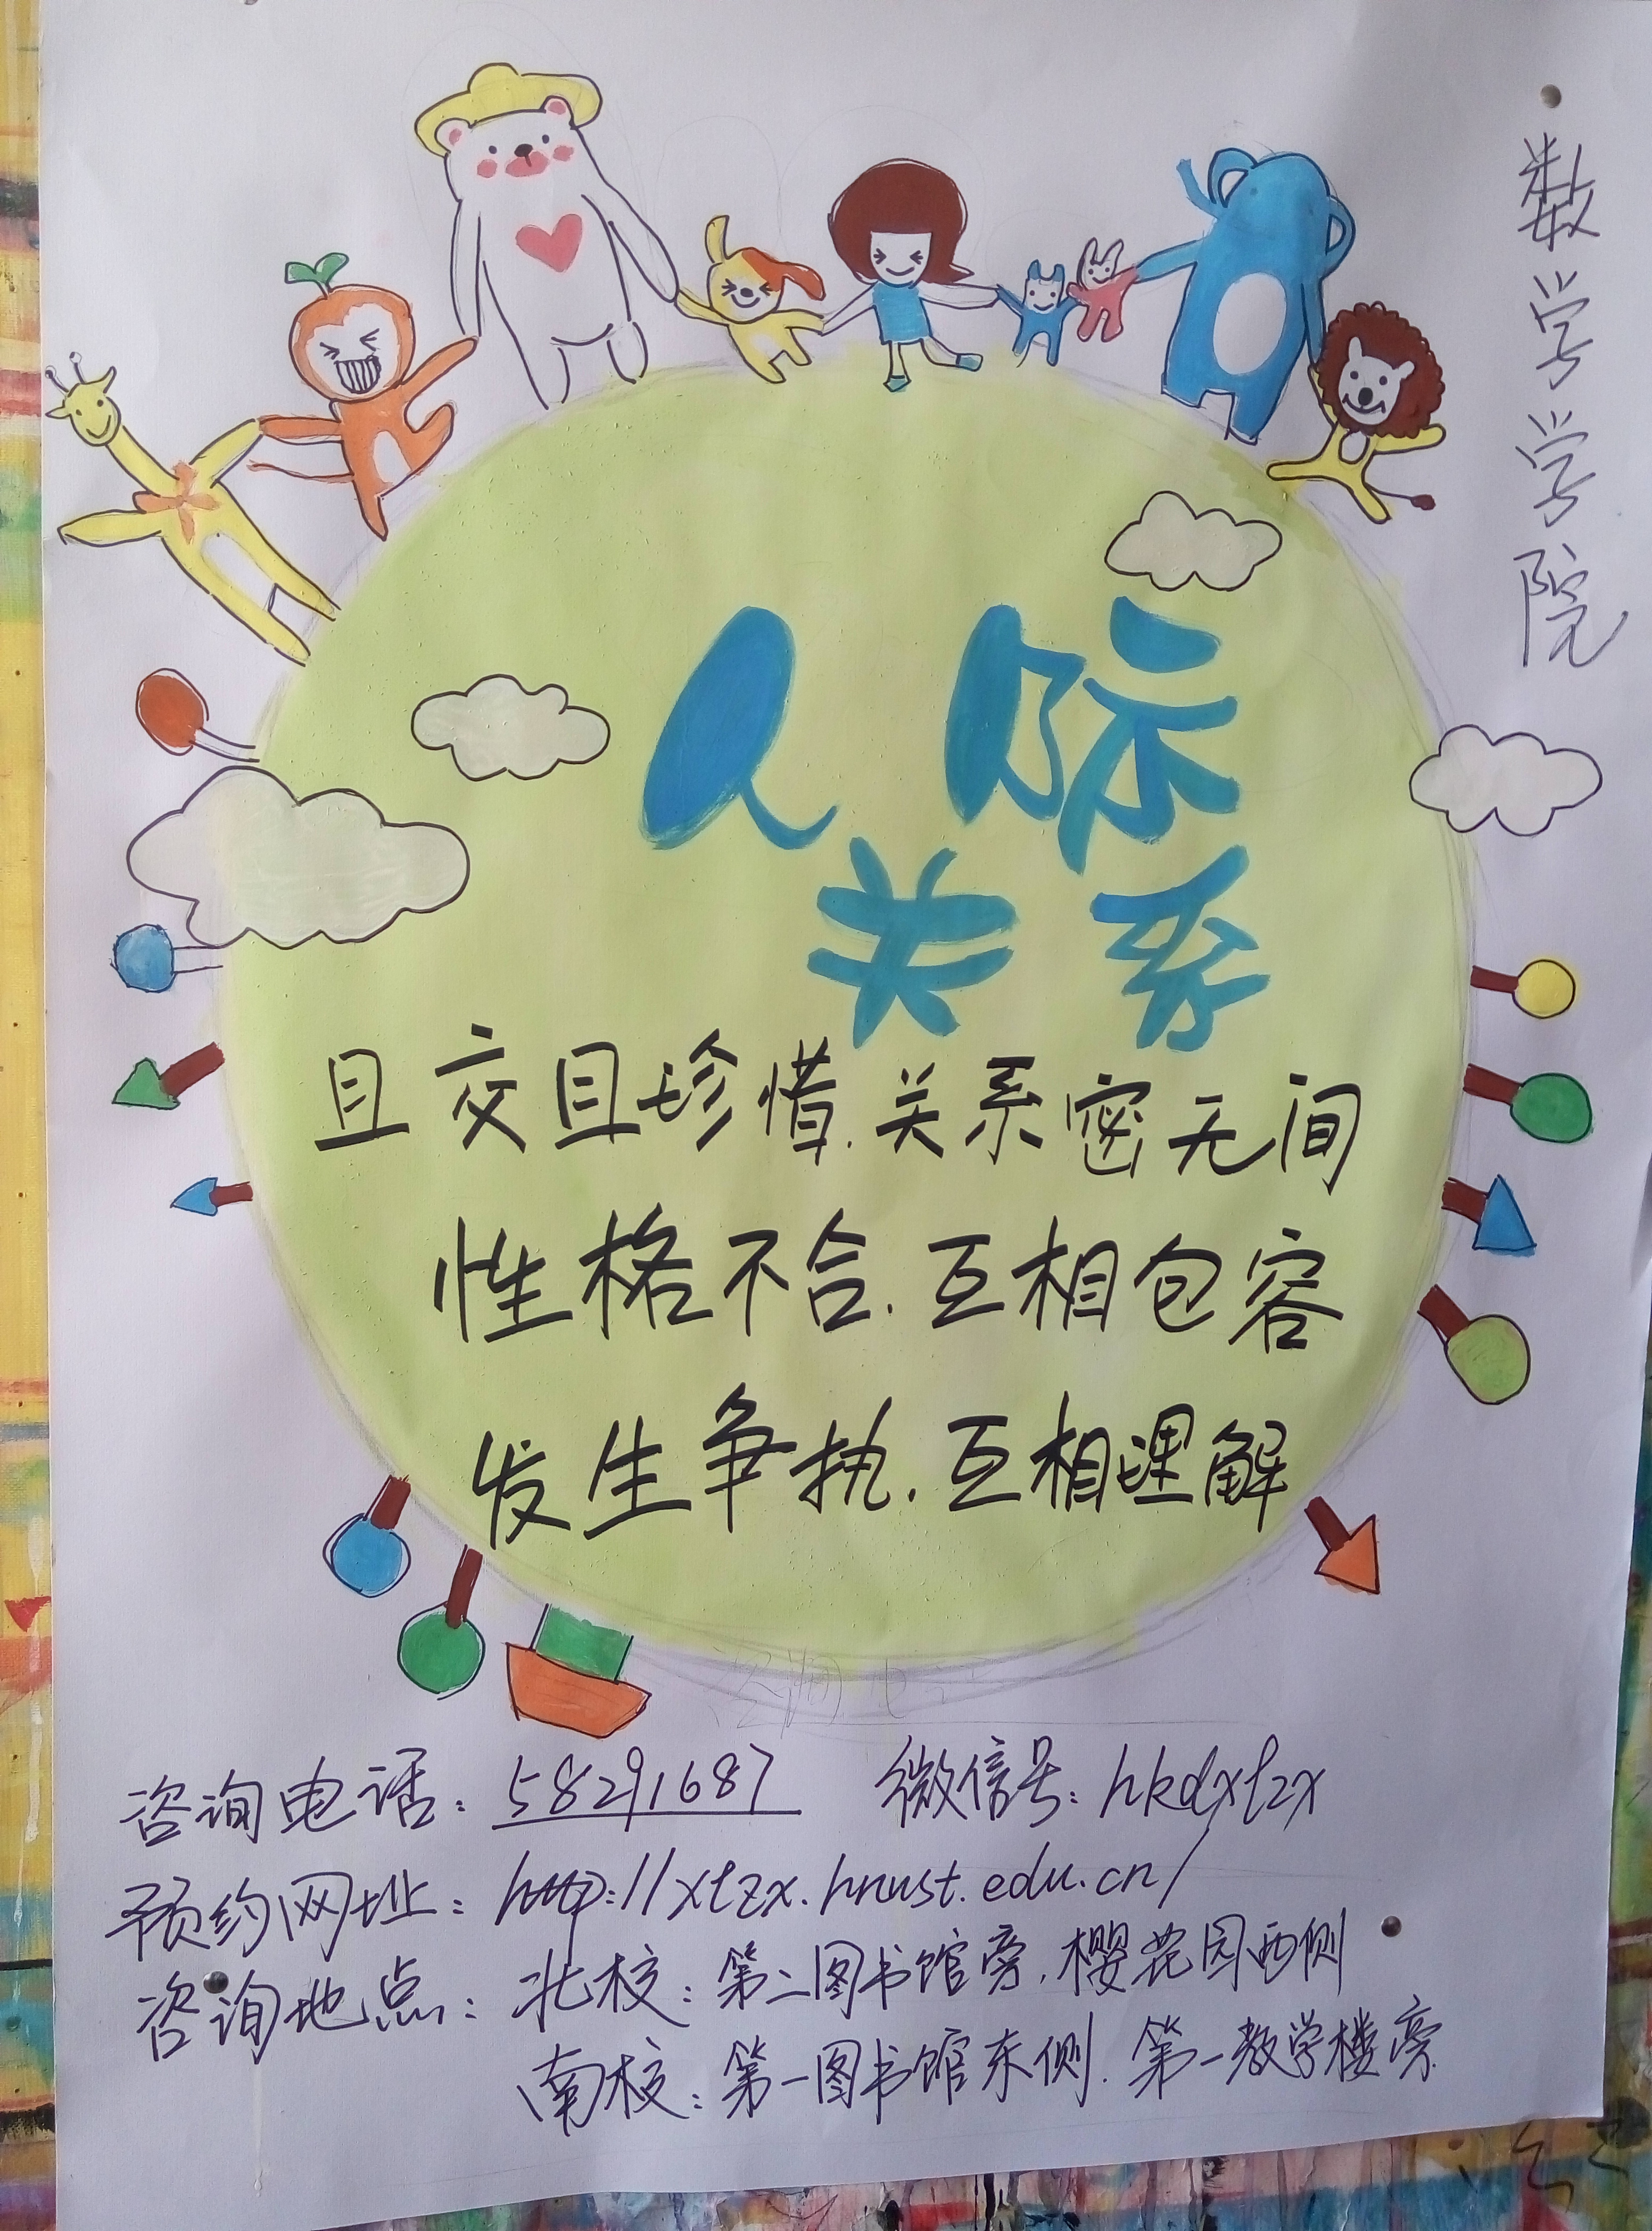 数学学院
人际
关系
且交且珍惜.关系密无间
性格不合.互相包容
发生争执.互相理解
咨询电话：58291687 微信号：hkdxlzx
预约网址：http://xlzx.hnust.edu.cn/
咨询地点：北校：第二图书馆旁.樱花园西侧
南校：第一图书馆东侧.第一教学楼旁